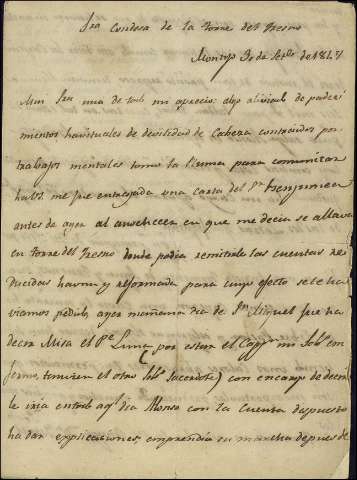 Sra Condesa de la Torre del Fresno
Montijo 30 de Setbre de 1847
Mui Sra mia de todo mi aprecio: algo aliviado de padeci
mientos havituales de devilidad de Cabeza contraidos por
trabajos mentales tomo la Pluma para comunicar
haber me sido entregada una carta del Sr
antes de ayer al anochecer en que me decia se allava
en Torre del Fresno donde podia remitirle las cuentas re
ducidas havria y reformada para cuyo efecto se le ha
viamos pedido, ayer mañana dia de Sn Miguel fue ha
decir Misa el Pe Luna (por estar el Cappn mi Sobo en
fermo, tambien el otro Sobo Sacerdote) con encargo de decir
le iria en todo aql dia Alonso con la Cuenta dispuesto
ha dar explicaciones, emprendia su marcha depues de